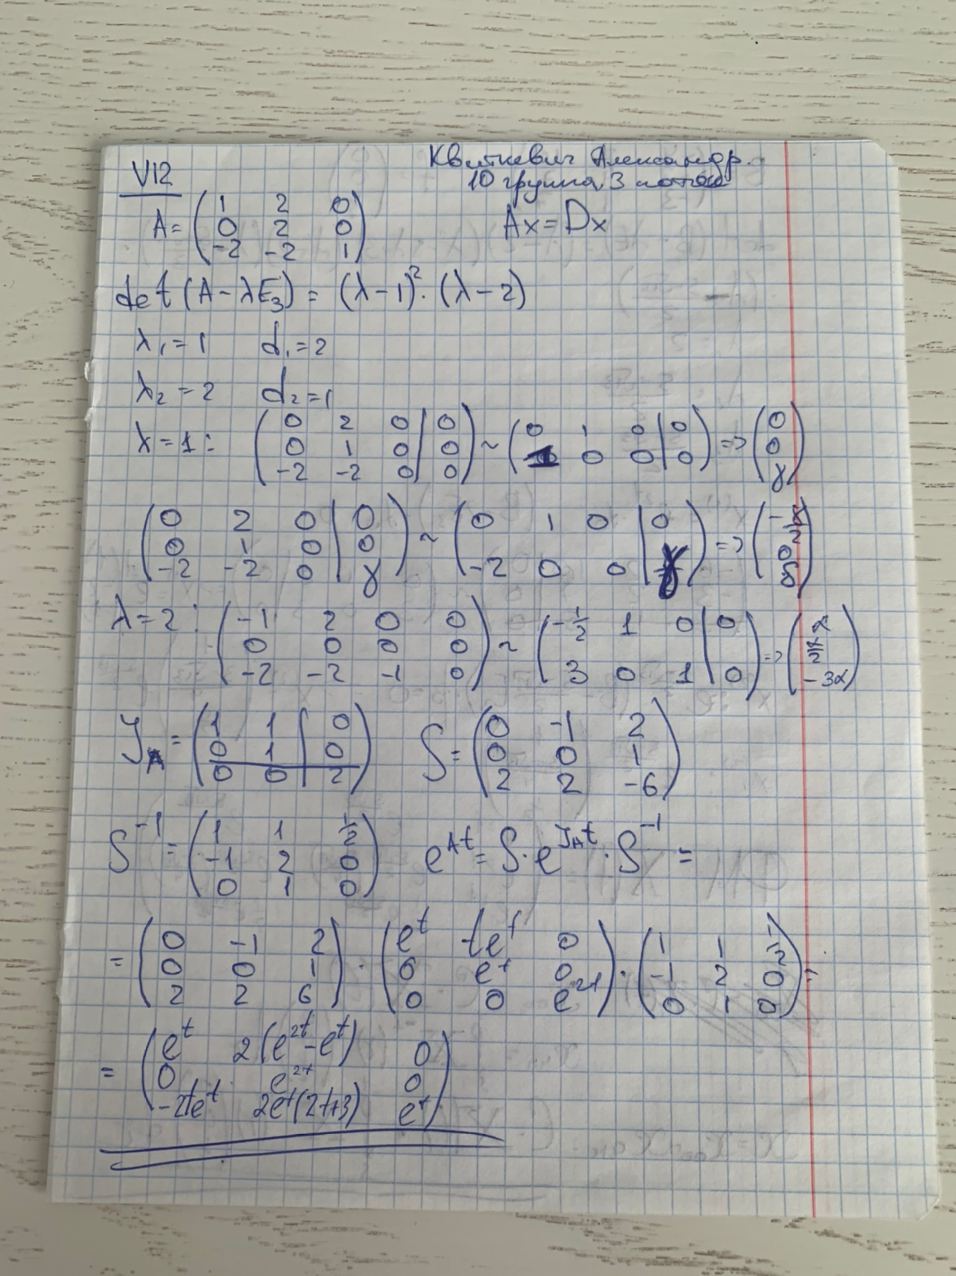 V12
Квиткевич Александр.
10 группа, 3 поток
A = ( 1 2 0
0 2 0
-2 -2 1 )
Ax = Dx
det (A - λE₃) = (λ-1)² · (λ-2)
λ₁ = 1 d₁ = 2
λ₂ = 2 d₂ = 1
λ = 1: ( 0 2 0 | 0
0 1 0 | 0
-2 -2 0 | 0 ) ~ ( 0 1 0 | 0
1 0 0 | 0 ) => ( 0
0
γ )
( 0 2 0 | 0
0 1 0 | 0
-2 -2 0 | γ ) ~ ( 0 1 0 | 0
-2 0 0 | γ ) =>
λ = 2: ( -1 2 0 0
0 0 0 0
-2 -2 -1 0 ) ~ ( -1/2 1 0 | 0
3 0 1 | 0 ) => ( α
α/2
-3α )
J_A = ( 1 1 | 0
0 1 | 0
0 0 2 )
S = ( 0 -1 2
0 0 1
2 2 -6 )
S⁻¹ = ( 1 1 1/2
-1 2 0
0 1 0 )
e^{At} = S · e^{J_A t} · S⁻¹ =
= ( 0 -1 2
0 0 1
2 2 6 ) · ( e^t te^t 0
0 e^t 0
0 0 e^{2t} ) · ( 1 1 1/2
-1 2 0
0 1 0 ) =
= ( e^t 2(e^{2t} - e^t) 0
0 e^{2t} 0
-2te^t 2e^t(2t+3) e^t )